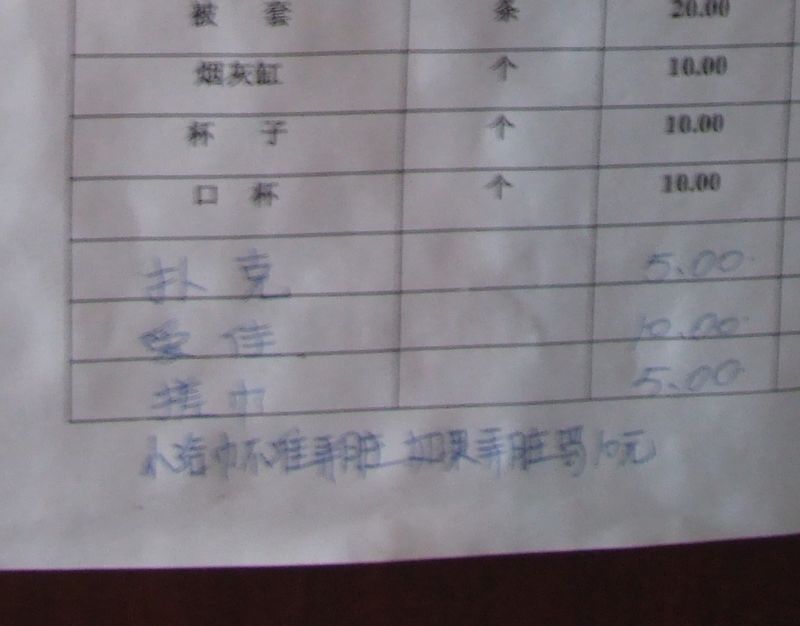 被 套 条 20.00
烟灰缸 个 10.00
杯 子 个 10.00
口 杯 个 10.00
扑 克 5.00
爱 佳 10.00
巾 5.00
小 巾不准弄脏 如果弄脏罚10元